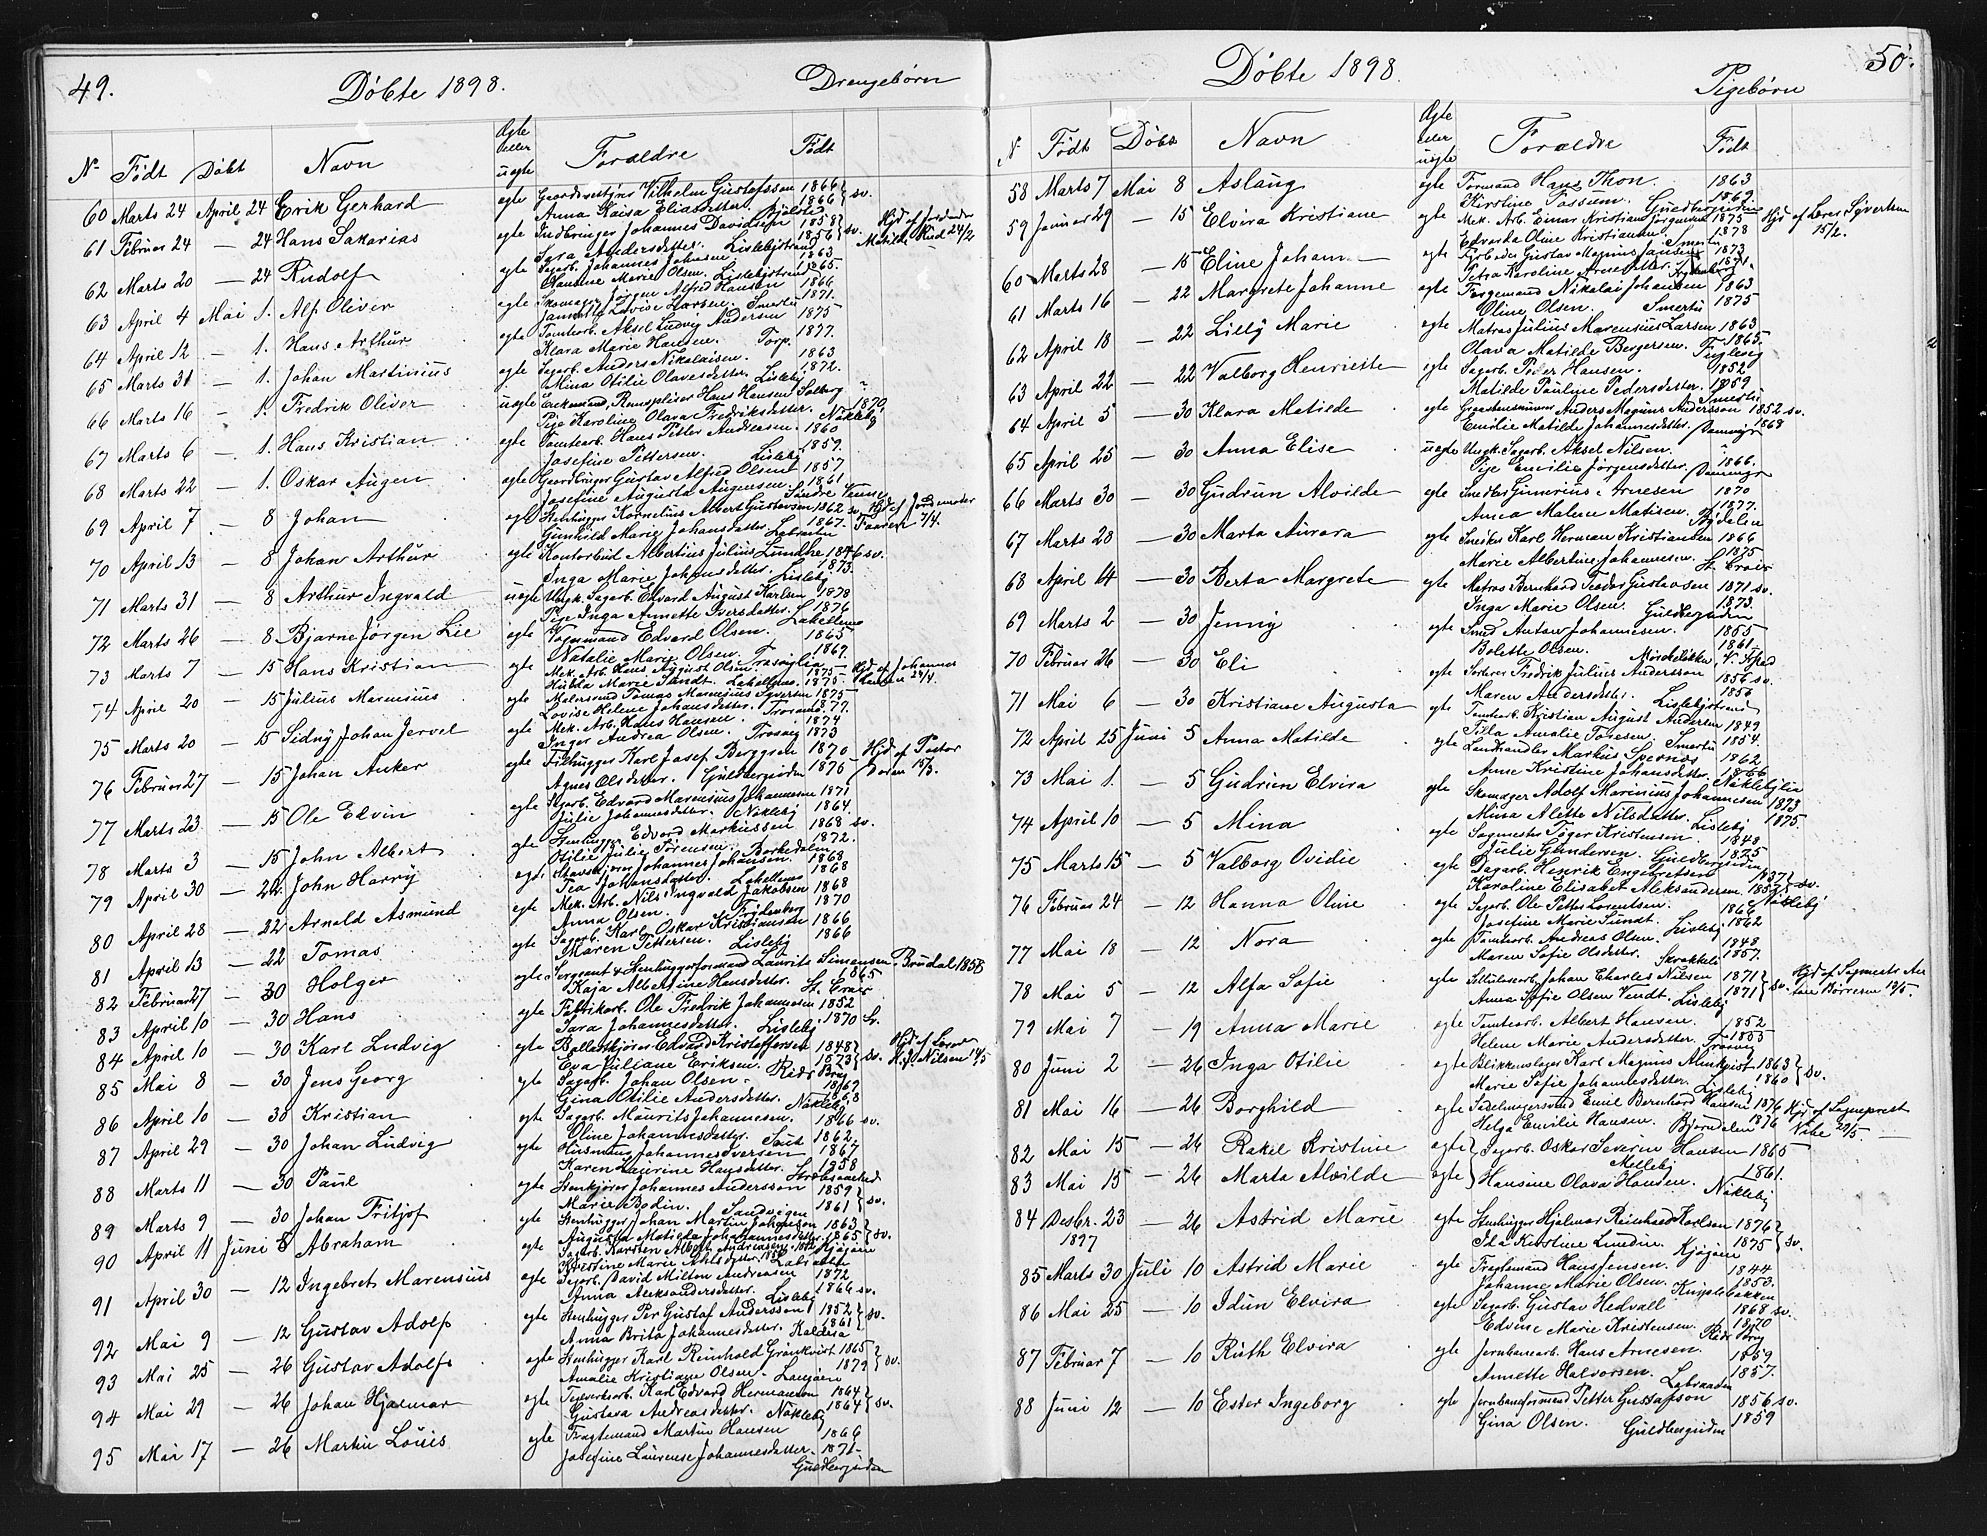 49.
Döbte 1898.
Drengebörn
No Födt Döbt Navn Ægte eller uegte Forældre Födt
60 Marts 24 April 24 Erik Gerhard egte Vilhelm Gustafsson 1866 sv.
Anna Kaisa Eliasdotter. 1866
61 Februar 24 — 24 Hans Sakarias egte Indbringer Johannes Davidsen 1858 sv. Hjd. af Jordmoder
Sara Andersdotter. Lislebystrand 1856 Matilde Lind 24/2
62 Marts 20 — 24 Rudolf egte Sagarb. Johannes Johnsen 1863
Maren Marie Olsen. Lislebystrand 1865.
63 April 4 Mai 1. Alf Oliver egte Skomager Jörgen Alfred Hansen 1866
Lovise Larsen. Smertu 1871.
64 April 12 — 1. Hans Arthur egte Tomtearb. Aksel Ludvig Andersen 1875
Klara Marie Hansen. Torp. 1877.
65 Marts 31 — 1. Johan Martinius egte Sagarb. Anders Nikolaisen. 1863
Mina Otilie Olavesdatter. Lisleby 1872.
66 Marts 16 — 1. Fredrik Oliver uegte Enkemand, Hans Hansen Solberg
Pige Karoline Olava Fredriksdatter. Nökleby 1870
67 Marts 6 — 1. Hans Kristian egte Tomtearb. Hans Petter Andreasen. 1860
Josefine Pettersen. Lisleby 1859.
68 Marts 22 — 1. Oskar Augen egte Gustav Alfred Olsen 1857
Josefine Augusta Augensen. 1861
69 April 7 — 8 Johan egte Stenhugger Kornelius Albert Gustavsen 1862 sv. Hjd. af Jordmoder
Gunhild Marie Johansdatter. Labraaten 1867. 7/4.
70 April 13 — 8 Johan Arthur egte Kontorbud Albertius Julius Lundhe 1846 sv.
Inga Marie Johansdatter. Lisleby 1873.
71 Marts 31 — 8 Arthur Ingvald uegte Ungk. Sagarb. Edvard August Karlsen 1878
Pige Inga Annette Iversdatter. Lahellene 1876
72 Marts 26 — 8 Bjarne Jörgen Lie egte Vognmand Edvard Olsen. 1865
Natalie Marie Olsen. 1869.
73 Marts 7 — 15 Hans Kristian egte Mek. Arb. Hans August Olsen 1875 Hjd. af Johannes
Hulda Marie Sundt. Lahellene. 1875 24/4.
74 April 20 — 15 Julius Marensius egte Malersvend Tomas Marensius Syversen 1875
Lovise Helene Johansdatter. Trosvik 1877.
75 Marts 20 — 15 Sidny Johan Jervel egte Mek. Arb. Hans Hansen. 1874
Inger Andrea Olsen. Trosvig 1873
76 Februar 27 — 15 Johan Anker egte Filhugger Karl Josef Berggren 1870 Hjd. af Pastor
Agnes Olsdatter. Guldbergsiden 1876 15/3.
77 Marts 23 — 15 Ole Elvin egte Sagarb. Edvard Marensius Johannesen 1871
Julie Johannesdatter. Nökleby 1864.
78 Marts 3 — 15 John Albert egte Stenhugger Edvard Markussen 1868 sv.
Otilie Julie Sörensen. Borkedalen 1872.
79 April 30 — 22 John Harry egte Johannes Johansen. 1863
Tea Johansdatter. Lahellene 1868
80 April 28 — 22 Arnold Asmund egte Mek. Arb. Nils Ingvald Jakobsen 1868
Anna Olsen. Frydenberg 1870
81 April 13 — 22 Tomas egte Sagarb. Karl Oskar Kristiansen 1866
Maren Pettersen. Lisleby 1866
82 Februar 27 — 30 Holger egte Sergeant & Stenhuggerformand Laurits Simensen Brudal 1858
Kaja Albertine Hansdatter. St. Croix 1865
83 April 10 — 30 Hans egte Fabrikarb. Ole Fredrik Johannesen 1852
Sara Johannesdatter. Lisleby 1870 sv.
84 April 10 — 30 Karl Ludvig egte Ballastkjörer Edvard Kristoffersen 1848 sv. Hjd. af Lærer
Eva Juliane Eriksen. 1873 Nilsen 14/5
85 Mai 8 — 30 Jens Georg egte Sagarb. Johan Olsen. 1869
Gina Otilie Andersdatter. Nökleby 1868
86 April 10 — 30 Kristian egte Sagarb. Maurits Johannesen. 1866 sv.
Oline Johannesdatter. 1862
87 April 29 — 30 Johan Ludvig egte Husmand Johannes Iversen 1867
Karen Laurine Hansdatter. 1858
88 Marts 11 — 30 Paul egte Stenkjörer Johannes Andersson 1859 sv.
Marie Bodin. Sandvigen 1861
89 Marts 9 — 30 Johan Fritjof egte Stenhugger Johan Martin Johnsen 1863 sv.
Augusta Matilda Johannesdatter 1865
90 April 11 Juni 5 Abraham egte Sagarb. Karsten Albert Andreasen
Kristine Marie
91 April 30 — 12 Ingebret Marensius egte Sagarb. David Milton Andreasen 1872
Anna Aleksandersdatter. Lisleby 1866 sv.
92 Mai 9 — 12 Gustav Adolf egte Stenhugger Per Gustaf Andersson 1852 sv.
Anna Brita Johannesdatter. Kaldera 1861
93 Mai 25 — 26 Gustav Adolf egte Stenhugger Karl Reinhold Grönkvist 1865 sv.
Amalie Kristiane Olsen. Langöen 1879
94 Mai 29 — 26 Johan Hjalmar egte Teglverksarb. Karl Edvard Hermansen 1864 sv.
Gustava Andreasdatter. Nökleby 1864
95 Mai 17 — 26 Martin Louis egte Fragtemand Martin Hansen 1866
Josefine Laurense Johannesdatter. 1871
Guldbergsiden
50.
Döbte 1898.
Pigebörn
N Födt Döbt Navn Ægte eller uegte Forældre Födt
58 Marts 7 Mai 8 Aslaug egte Formand Hans Thon. 1863
Kirstine Fossum. Guldbergsiden 1869
59 Januar 29 — 15 Elvira Kristiane egte Mek. Arb. Einar Kristian Jörgensen 1875 Hjd. af Lærer Syvertsen
Edvarda Oline Kristiansen. Smertu 1878 15/2.
60 Marts 28 — 15 Eline Johanne egte Gustav Magnus Jansen 1873
Petra Karoline Arnesdatter. 1871.
61 Marts 16 — 22 Margrete Johanne egte Færgemand Nikolai Johansen 1863
Oline Olsen. Smertu 1875
62 April 18 — 22 Lilly Marie egte Matros Julius Marensius Larsen 1863
Olava Matilde Bergersen. Fuglevig 1865.
63 April 22 — 22 Valborg Henriette egte Sagarb. Peder Hansen. 1852
Matilde Pauline Pedersdatter. Smertu 1859
64 April 5 — 30 Klara Matilde egte Anders Magnus Andersson 1852 sv.
Emilie Matilde Johannesdatter. Damvigr 1868
65 April 25 — 30 Anna Elise uegte Ungk. Sagarb. Aksel Nilsen.
Pige Emilie Jörgensdatter. Damvigr 1866.
66 Marts 30 — 30 Gudrun Alvilde egte Gunerius Arnesen 1870
Anna Malene Matisen. Bydalen 1877.
67 Marts 28 — 30 Marta Aurora egte Snedker Karl Herman Kristiansen 1866
Marie Albertine Johannesen. St. Croix 1875
68 April 14 — 30 Berta Margrete egte Matros Bernhard Teodor Gustavsen 1871 sv.
Inga Marie Olsen. Guldbergsiden 1873.
69 Marts 2 — 30 Jenny egte Smed Anton Johannesen. 1855
Bolette Olsen. 1861.
70 Februar 26 — 30 Eli egte Sorterer Fredrik Julius Andersson 1856 sv.
Maren Andersdatter. Lislebystrand 1856
71 Mai 6 — 30 Kristiane Augusta egte Tomtearb. Kristian August Andersen 1849
Tilla Amalie Toresen. Smertu 1854.
72 April 25 Juni 5 Anna Matilde egte Landhandler Markus Spernes 1862
Anne Kristine Johansdatter. Nöklebylia 1866
73 Mai 1. — 5 Gudrun Elvira egte Skomager Adolf Marinius Johannesen 1873
Mina Alette Nilsdatter. Lisleby 1875.
74 April 10 — 5 Mina egte Sagmester Töger Kristensen 1848
Julie Gundersen. Guldbergsiden 1855
75 Marts 15 — 5 Valborg Ovidie egte Dagarb. Henrik Engebretsen 1837 sv.
Karoline Elisabet Aleksandersen 1852 Nökleby
76 Februar 24 — 12 Hanna Oline egte Sagarb. Ole Petter Lorentsen. 1866
Josefine Marie Sundt. Lisleby 1862
77 Mai 18 — 12 Nora egte Tomtearb. Andreas Olsen. 1848
Maren Sofie Olsdatter. Skrakkeli 1857.
78 Mai 5 — 12 Alfa Sofie egte Johan Charles Nilsen 1871 sv. Hjd. af Sagmester An
Anna Sofie Olsen Vendt. Lisleby 1871 ton Börresen 12/5.
79 Mai 7 — 19 Anna Marie egte Tomtearb. Albert Hansen. 1852
Helene Marie Andersdatter. Trosvig 1855
80 Juni 2 — 26 Inga Otilie egte Blikkenslager Karl Magnus Almkvist 1863 sv.
Marie Sofie Johannesdatter. Lisleby 1860
81 Mai 16 — 26 Borghild egte Sadelmagersvend Emil Bernhard Hansen 1876 Hjd. af Sogneprest
Helga Emilie Hansen. Bjørndalen 1876 29/5.
82 Mai 15 — 26 Rakel Kristine egte Sagarb. Oskar Severin Hansen 1865
Melleby
83 Mai 15 — 26 Marta Alvilde egte Hansine Olava Hansen. 1861.
Nökleby
84 Desbr. 23 — 26 Astrid Marie egte Stenhugger Hjalmar Reinhard Karlsen 1876 sv.
1897 Ida Kirstine Lundin. Kjöjöen 1875
85 Marts 30 Juli 10 Astrid Marie egte Fragtemand Hans Jensen. 1844
Johanne Marie Olsen. Kniplebakken 1853.
86 Mai 25 — 10 Idun Elvira egte Sagarb. Gustav Hedvall 1868 sv.
Edvine Marie Kristensen. 1870
87 Februar 7 — 10 Ruth Elvira egte Jernbanearb. Hans Arnesen. 1859
Annette Halvorsen. Labraaden 1857.
88 Juni 12 — 10 Ester Ingeborg egte Jernbaneformand Petter Gustafson 1856 sv.
Gina Olsen. Guldbergsiden 1859